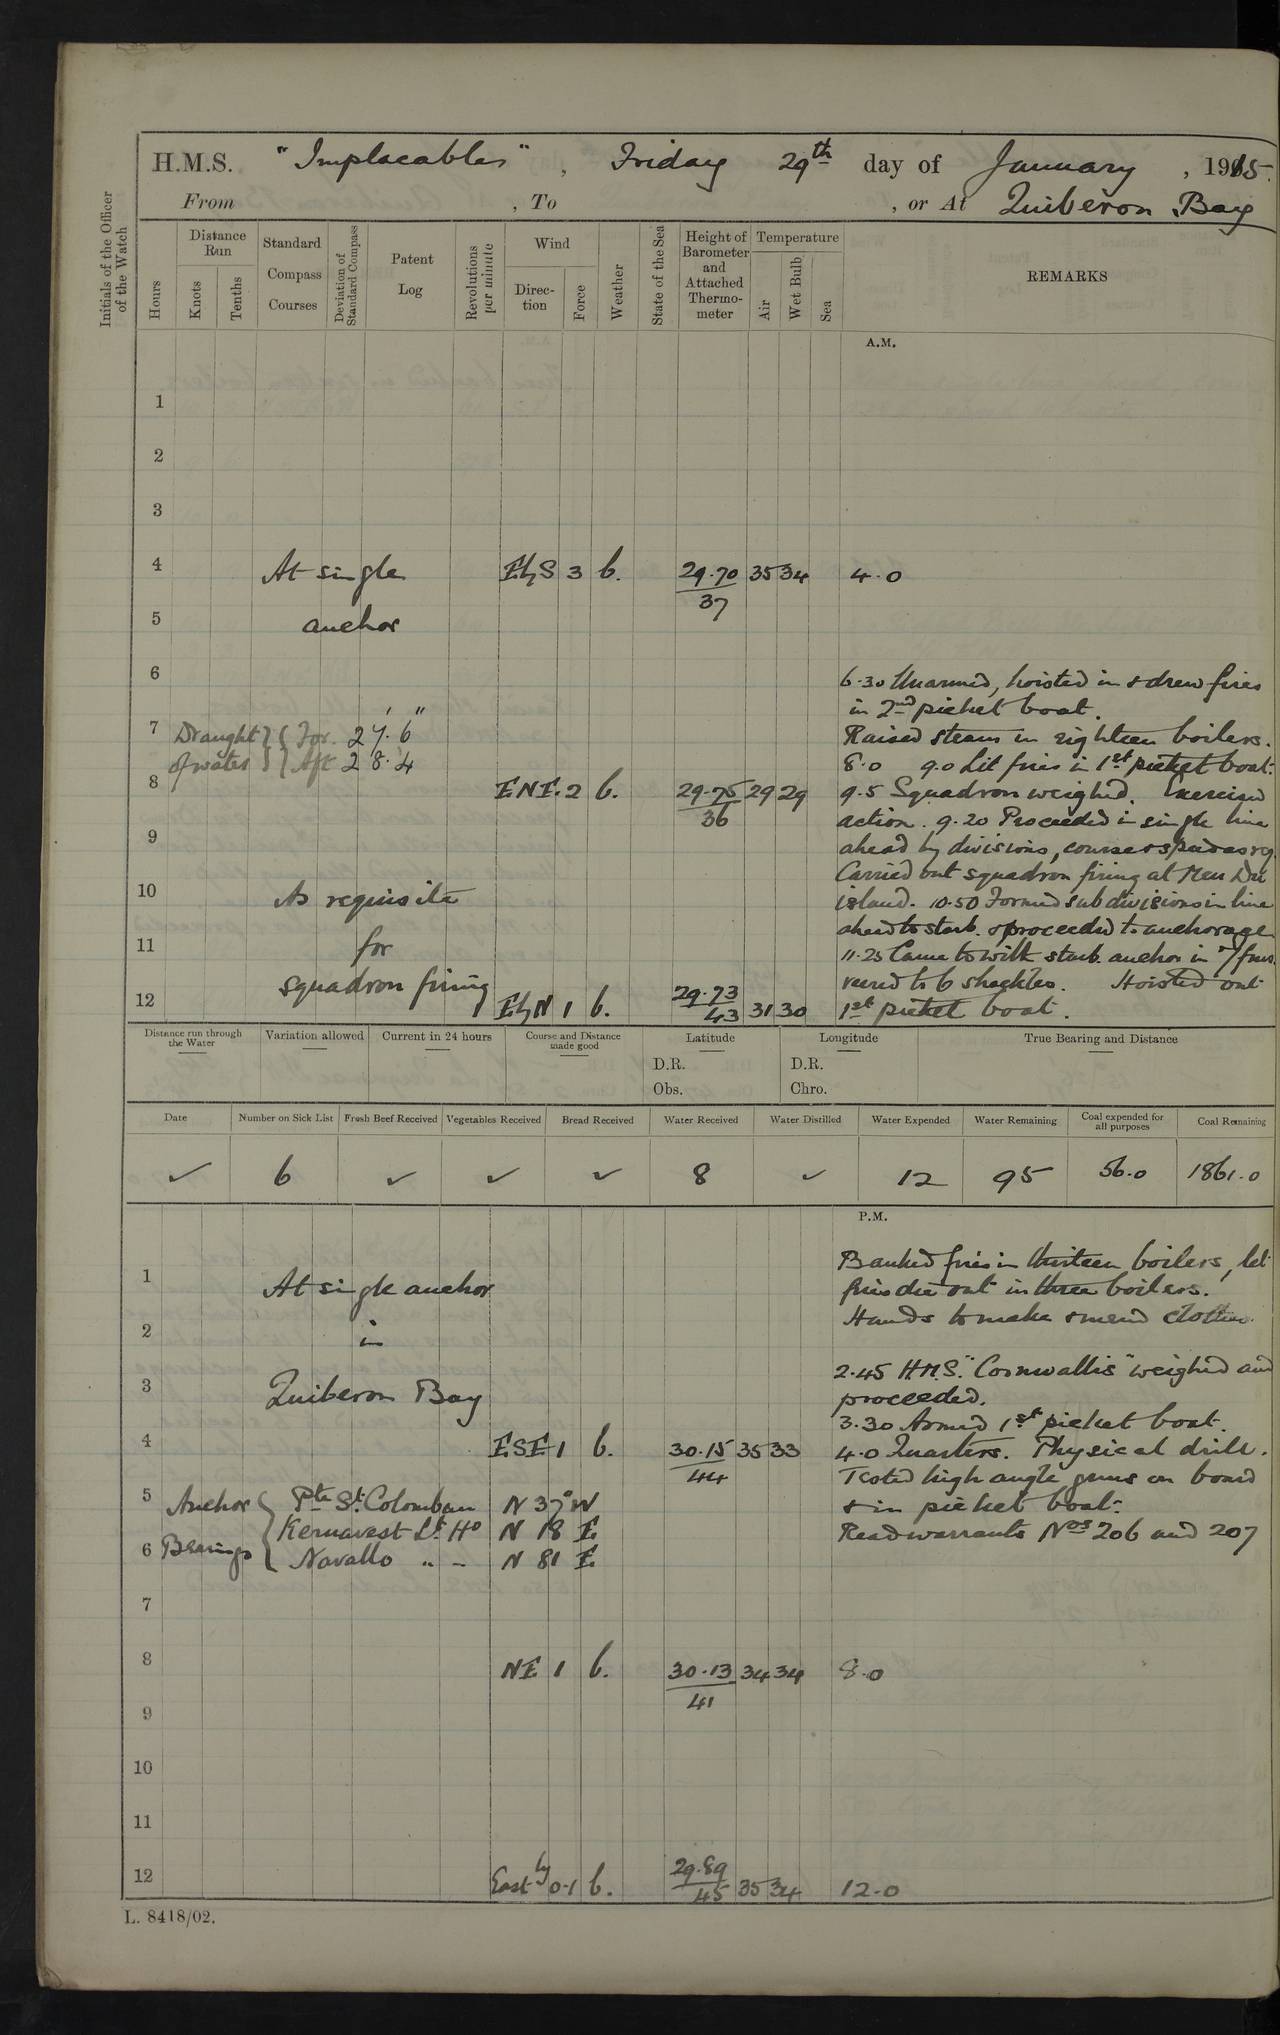 H.M.S. "Implacable", Friday 29th day of January, 1915.
From , To , or At Quiberon Bay
Initials of the Officer of the Watch
Hours
Distance Run
Knots
Tenths
Standard Compass Courses
Deviation of Standard Compass
Patent Log
Revolutions per minute
Wind
Direction
Force
Weather
State of the Sea
Height of Barometer and Attached Thermometer
Temperature
Air
Wet Bulb
Sea
REMARKS
A.M.
1
2
3
4 At single EbyS 3 b. 29.70 35 34 4.0
37
5 anchor
6
6.30 Unarmed, hoisted in & drew fires
in 2nd picket boat.
7 Draught of water { For. 27' 6"
Aft 28.4
Raised steam in eighteen boilers.
8.0 9.0 Lit fires in 1st picket boat.
8 ENE. 2 b. 29.75 29 29 9.5 Squadron weighed. Exercised
36
action. 9.20 Proceeded in single line
9
ahead by divisions, course & speed as req.
Carried out squadron firing at Men Du
10 As requisite island. 10.50 Formed subdivisions in line
ahead to starb. & proceeded to anchorage
11 for
11.25 Came to with starb. anchor in 7 fms.
squadron firing veered to 6 shackles. Hoisted out
12 EbyN 1 b. 29.73 31 30 1st picket boat.
43
Distance run through the Water
Variation allowed
Current in 24 hours
Course and Distance made good
Latitude
D.R.
Obs.
Longitude
D.R.
Chro.
True Bearing and Distance
Date Number on Sick List Fresh Beef Received Vegetables Received Bread Received Water Received Water Distilled Water Expended Water Remaining Coal expended for all purposes Coal Remaining
✓ 6 ✓ ✓ ✓ 8 ✓ 12 95 56.0 1861.0
P.M.
Banked fires in thirteen boilers, let
1 At single anchor fires die out in three boilers.
Hands to make & mend clothes.
2 in
2.45 H.M.S. "Cornwallis" weighed and
3 Quiberon Bay proceeded.
3.30 Armed 1st picket boat.
4 ESE 1 b. 30.15 35 33 4.0 Quarters. Physical drill.
44
Tested high angle guns on board
5 Anchor Bearings { Pte St. Colomban N 37° W & in picket boat.
Kernavest Lt Ho N 18 E Read warrants Nos 206 and 207
6 Navallo " - N 81 E
7
8 NE 1 b. 30.13 34 34 8.0
41
9
10
11
12 East by 0-1 b. 29.89 35 34 12.0
45
L. 8418/02.